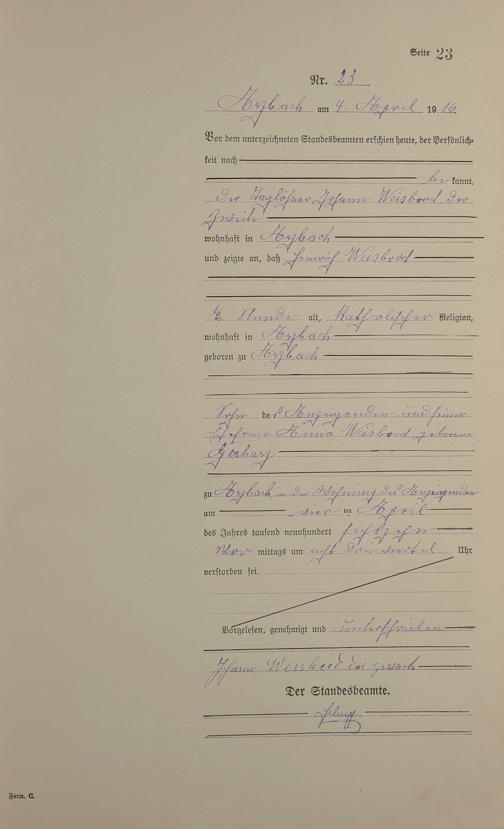 Seite 23
Nr. 23
Arzbach am 4 April 1916.
Vor dem unterzeichneten Standesbeamten erschien heute, der Persönlich-
keit nach
be kannt,
der Taglöhner Johann Weisbrod der
Zweite
wohnhaft in Arzbach
und zeigte an, daß Heinrich Weisbrod
½ Stunde alt, Katholischer Religion,
wohnhaft in Arzbach
geboren zu Arzbach
Sohn des Anzeigenden und seiner
Ehefrau Anna Weisbrod geborene
Gerharz
zu Arzbach, in der Wohnung des Anzeigenden
am vier ten April
des Jahres tausend neunhundert sechszehn
Vor mittags um acht drei viertel Uhr
verstorben sei.
Vorgelesen, genehmigt und unterschrieben
Johann Weisbrod der zweite
Der Standesbeamte.
Form. C.